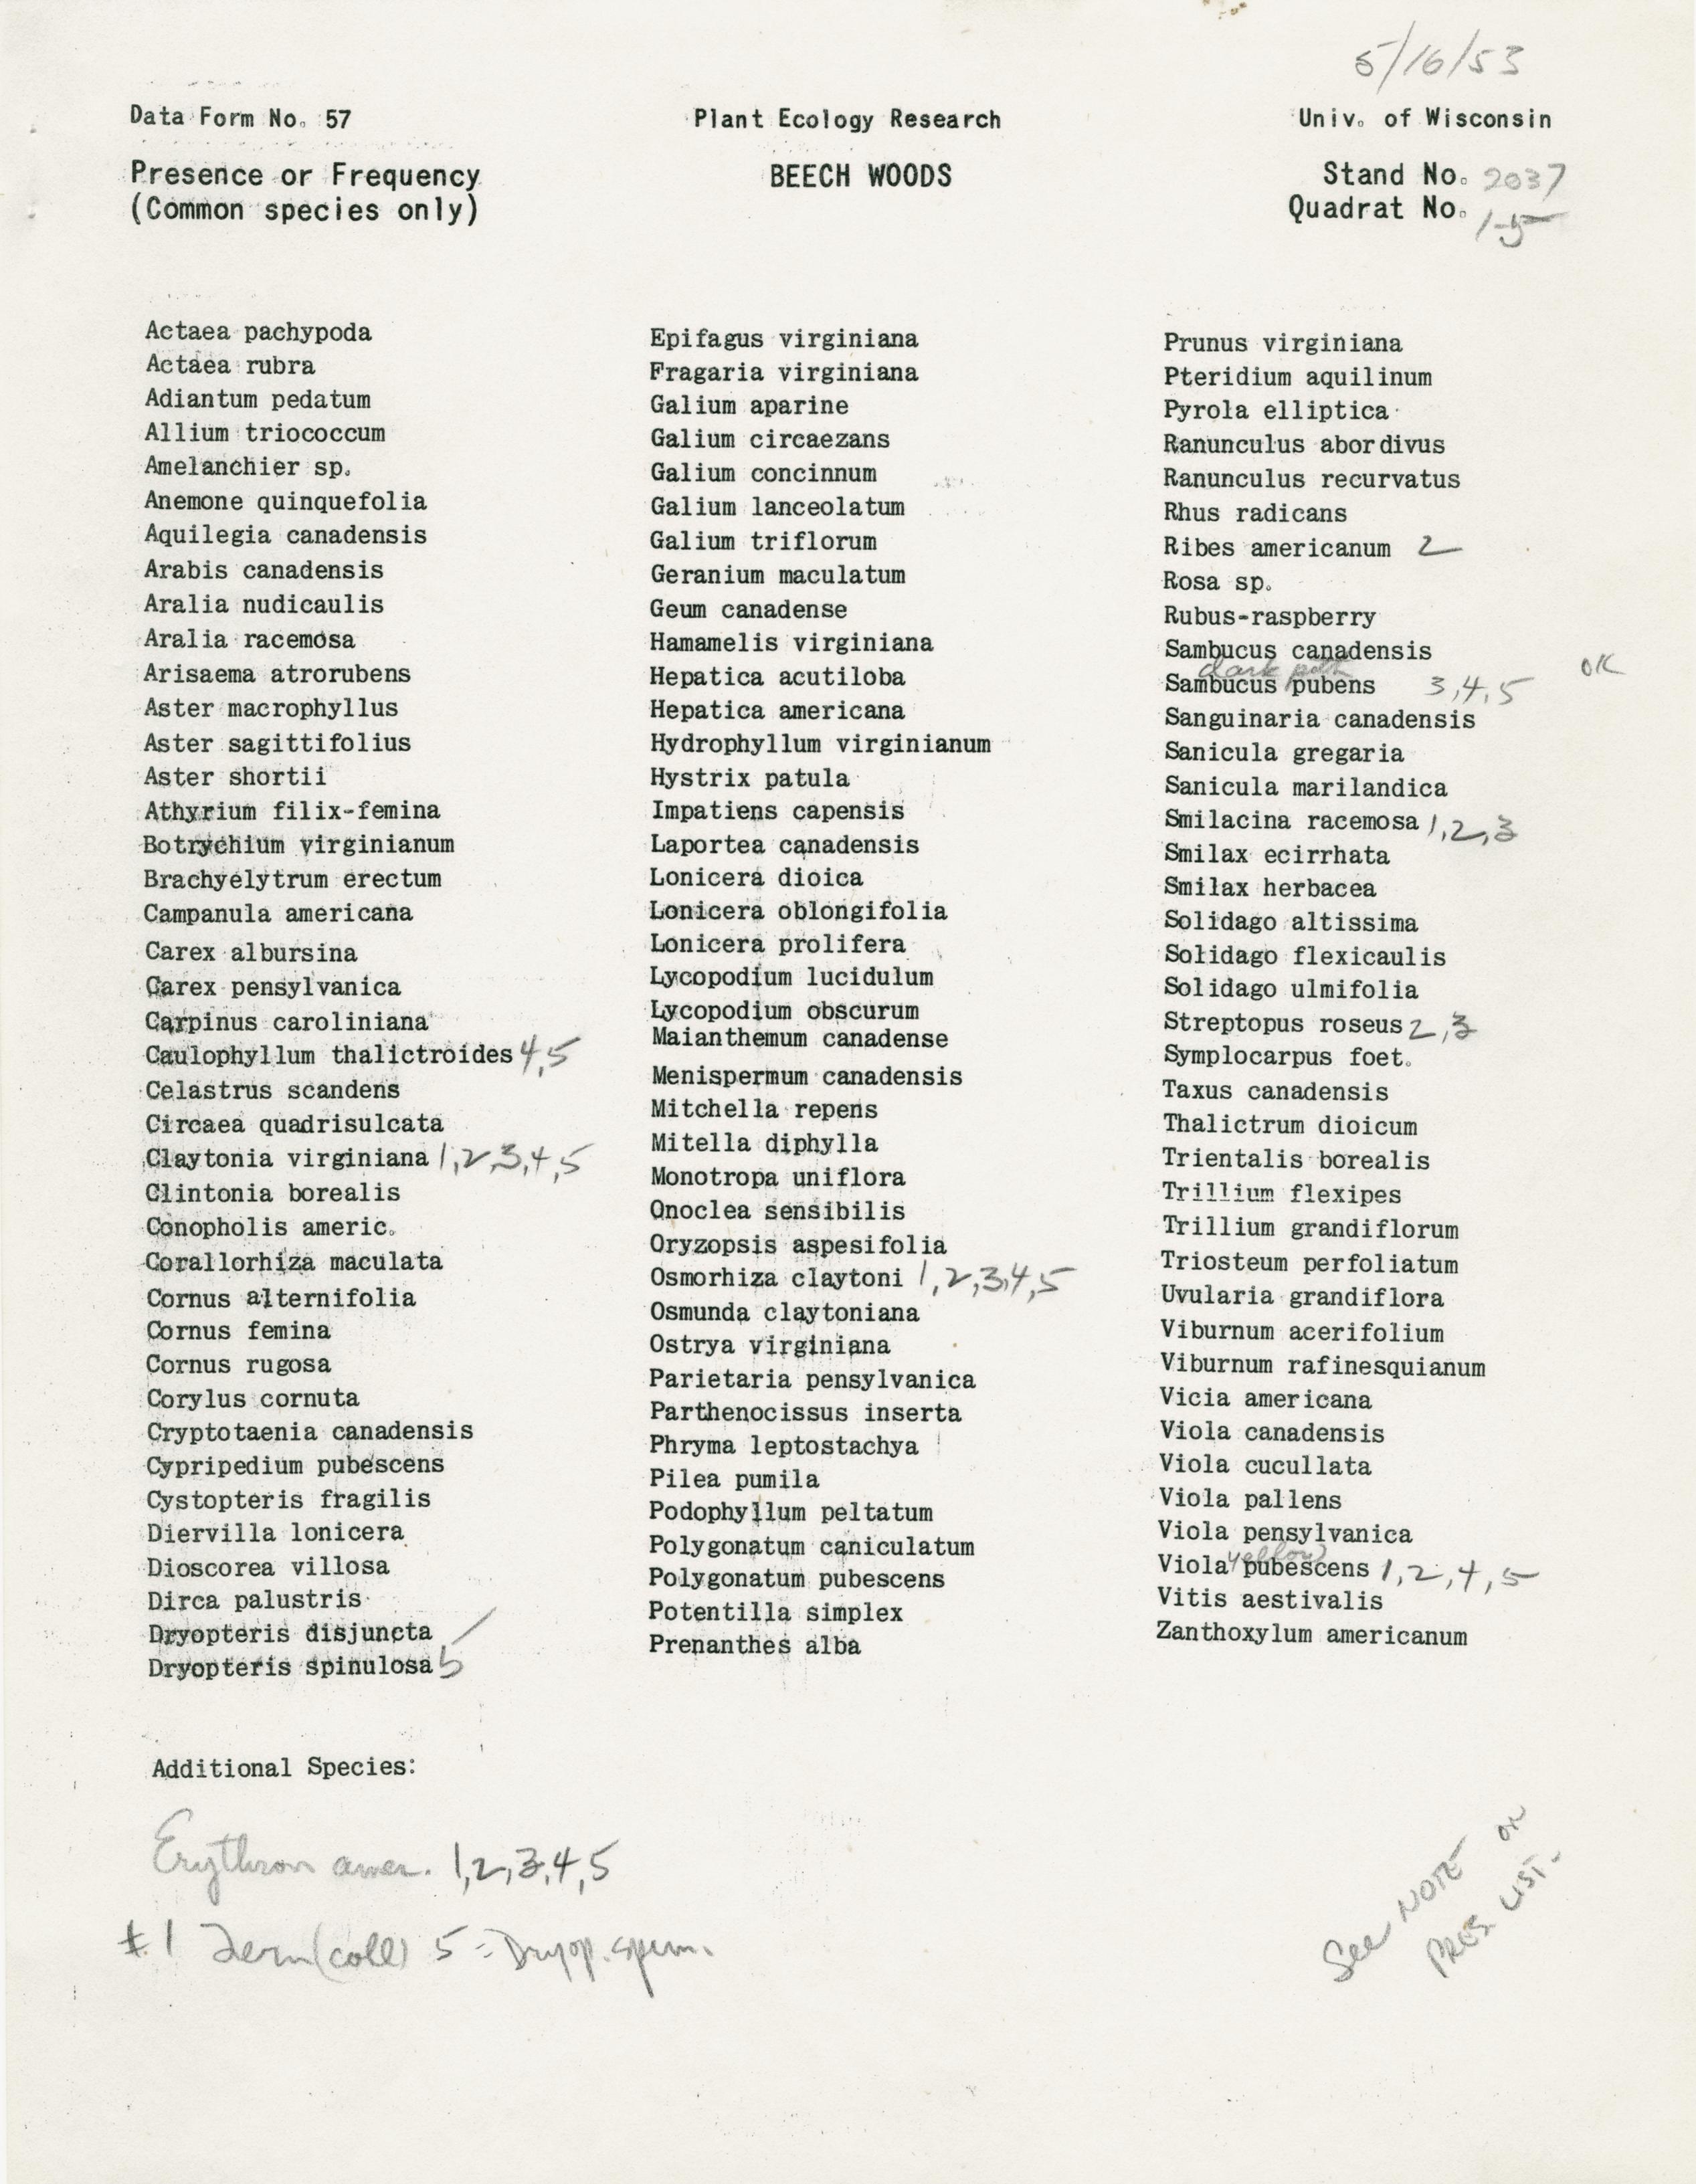 5/16/53
Data Form No. 57
Plant Ecology Research
Univ. of Wisconsin
Presence or Frequency
(Common species only)
BEECH WOODS
Stand No. 2037
Quadrat No. 1-5
Actaea pachypoda
Actaea rubra
Adiantum pedatum
Allium triococcum
Amelanchier sp.
Anemone quinquefolia
Aquilegia canadensis
Arabis canadensis
Aralia nudicaulis
Aralia racemosa
Arisaema atrorubens
Aster macrophyllus
Aster sagittifolius
Aster shortii
Athyrium filix-femina
Botrychium virginianum
Brachyelytrum erectum
Campanula americana
Carex albursina
Carex pensylvanica
Carpinus caroliniana
Caulophyllum thalictroides 4,5
Celastrus scandens
Circaea quadrisulcata
Claytonia virginiana 1,2,3,4,5
Clintonia borealis
Conopholis americ.
Corallorhiza maculata
Cornus alternifolia
Cornus femina
Cornus rugosa
Corylus cornuta
Cryptotaenia canadensis
Cypripedium pubescens
Cystopteris fragilis
Diervilla lonicera
Dioscorea villosa
Dirca palustris
Dryopteris disjuncta
Dryopteris spinulosa 5
Epifagus virginiana
Fragaria virginiana
Galium aparine
Galium circaezans
Galium concinnum
Galium lanceolatum
Galium triflorum
Geranium maculatum
Geum canadense
Hamamelis virginiana
Hepatica acutiloba
Hepatica americana
Hydrophyllum virginianum
Hystrix patula
Impatiens capensis
Laportea canadensis
Lonicera dioica
Lonicera oblongifolia
Lonicera prolifera
Lycopodium lucidulum
Lycopodium obscurum
Maianthemum canadense
Menispermum canadensis
Mitchella repens
Mitella diphylla
Monotropa uniflora
Onoclea sensibilis
Oryzopsis aspesifolia
Osmorhiza claytoni 1,2,3,4,5
Osmunda claytoniana
Ostrya virginiana
Parietaria pensylvanica
Parthenocissus inserta
Phryma leptostachya
Pilea pumila
Podophyllum peltatum
Polygonatum caniculatum
Polygonatum pubescens
Potentilla simplex
Prenanthes alba
Prunus virginiana
Pteridium aquilinum
Pyrola elliptica
Ranunculus abordivus
Ranunculus recurvatus
Rhus radicans
Ribes americanum 2
Rosa sp.
Rubus-raspberry
Sambucus canadensis
dark pith OK
Sambucus pubens 3,4,5
Sanguinaria canadensis
Sanicula gregaria
Sanicula marilandica
Smilacina racemosa 1,2,3
Smilax ecirrhata
Smilax herbacea
Solidago altissima
Solidago flexicaulis
Solidago ulmifolia
Streptopus roseus 2,3
Symplocarpus foet.
Taxus canadensis
Thalictrum dioicum
Trientalis borealis
Trillium flexipes
Trillium grandiflorum
Triosteum perfoliatum
Uvularia grandiflora
Viburnum acerifolium
Viburnum rafinesquianum
Vicia americana
Viola canadensis
Viola cucullata
Viola pallens
Viola pensylvanica
yellow
Viola pubescens 1,2,4,5
Vitis aestivalis
Zanthoxylum americanum
Additional Species:
Erythron amer. 1,2,3,4,5
#1 Fern (coll) 5 = Dryop. spin.
See NOTE on
PRES. LIST.